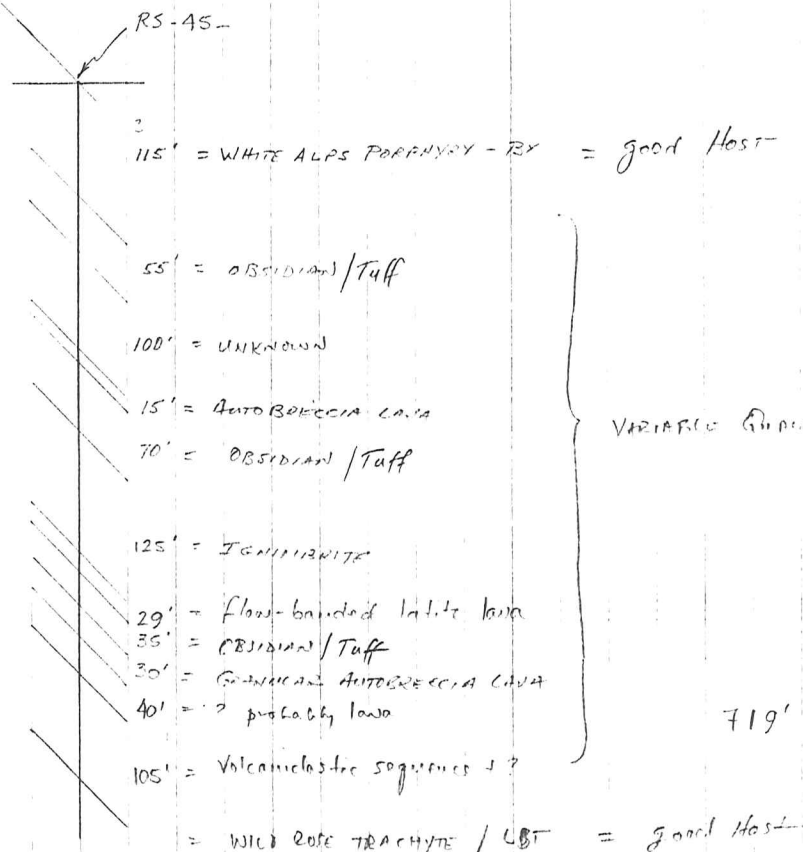 RS-45-
?
115' = WHITE ALPS PORPHYRY - BX = good Host
55' = OBSIDIAN/Tuff
100' = UNKNOWN
15' = AUTOBRECCIA LAVA
VARIABLE
70' = OBSIDIAN/Tuff
125' = IGNIMBRITE
29' = flow-banded latite lava
35' = OBSIDIAN/Tuff
30' = AUTOBRECCIA LAVA
40' = ? probably lava
719'
105' = Volcaniclastic sequences ?
= WILD ROSE TRACHYTE / LBT = good Host